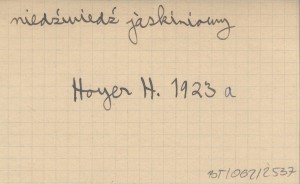 niedźwiedź jaskiniowy
Hoyer H. 1923 a
BT/062/2537